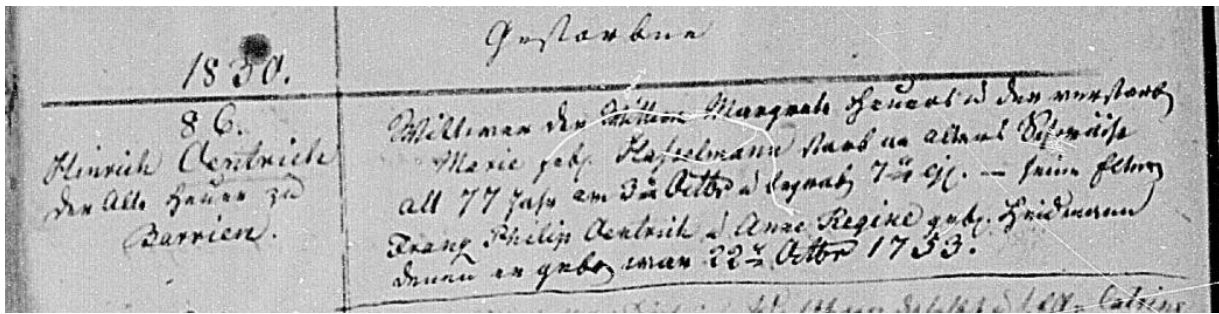 Gestorbne
1830.
86.
Hinrich Oentrich
der Alte Heuer zu
Barrien.
Wittwer der Margrete Heuers u der verstorb
Marie geb. Hasselmann starb an alters Schwäche
alt 77 Jahr am 3ten Octbr u begrab 7ten ej. — seine Eltern
Franz Philip Oentrich u Anne Regine geb. Heidmann
denen er geb war 22ten Octbr 1753.